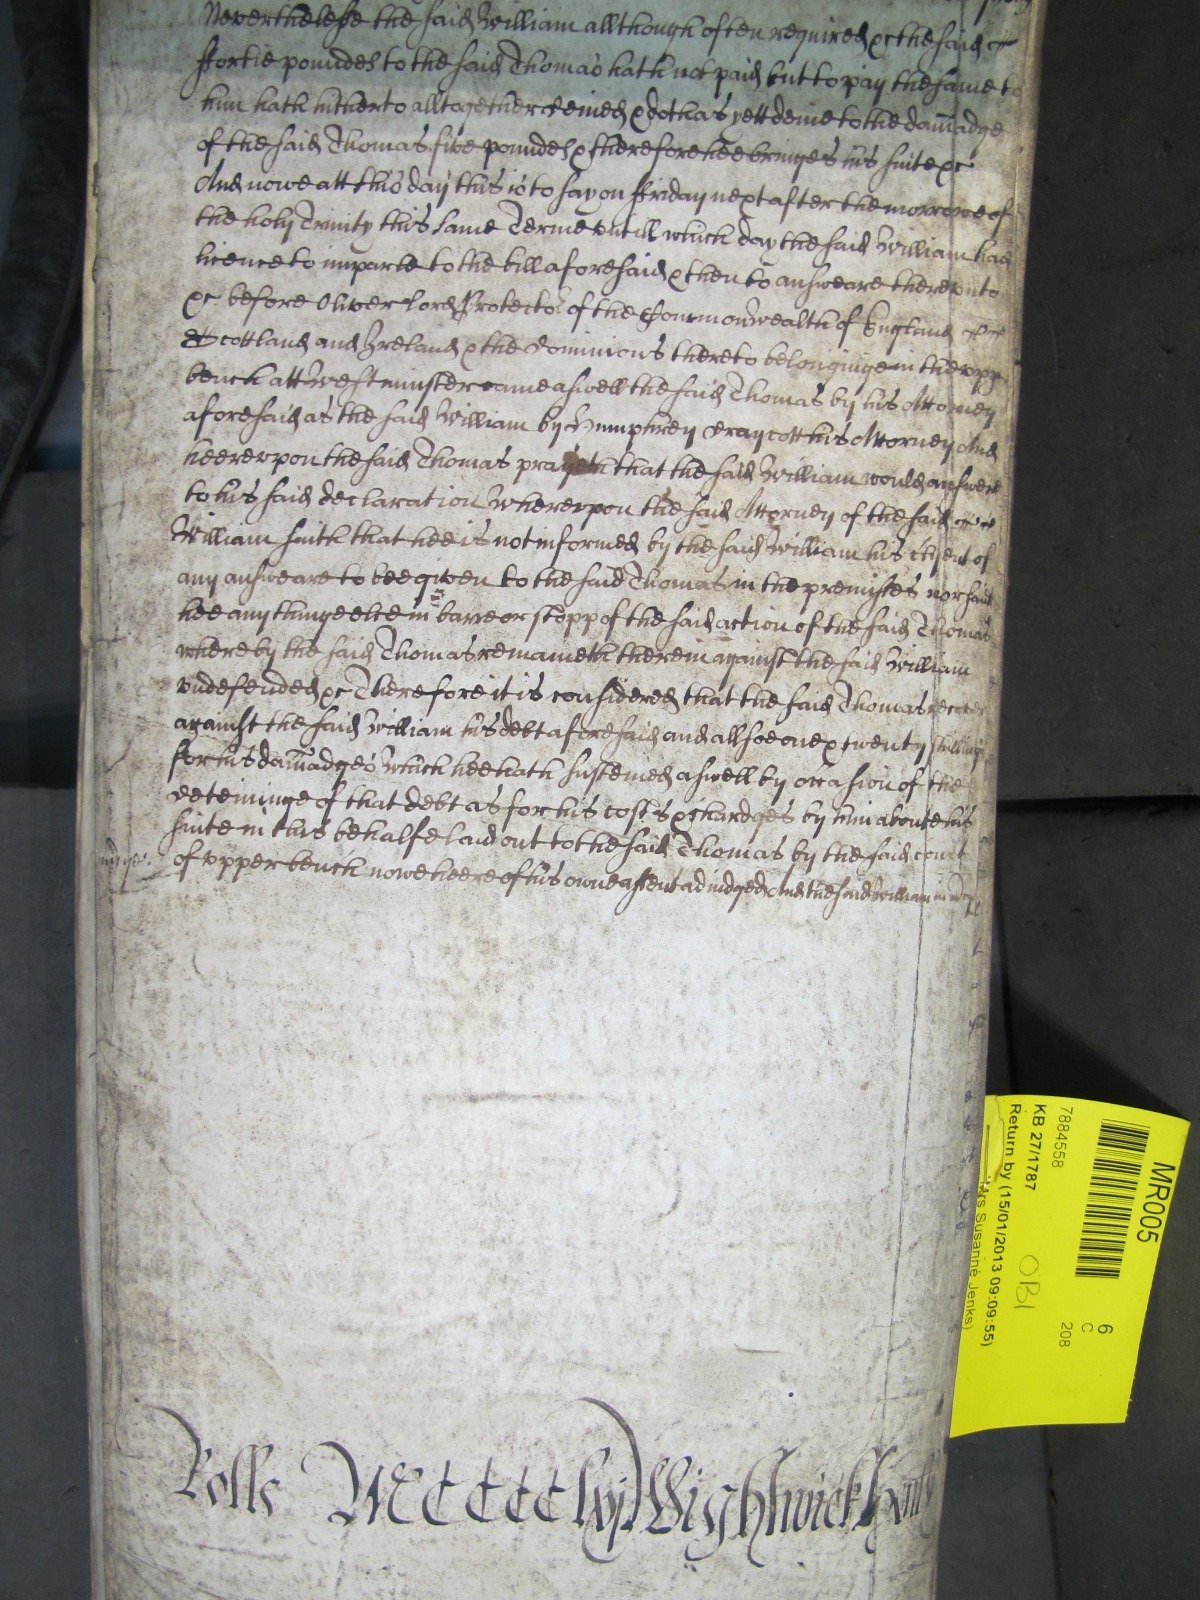 Neverthelesse the said William allthough often required &c the said
ffortie poundes to the said Thomas hath not paid but to pay the same to
him hath hitherto alltogether denied & doth as yett denie to the dam̄adge
of the said Thomas five poundes & therefore hee bringes his suite &c
And nowe att this day this is to say on ffriday next after the morrowe of
the holy Trinity this same Terme untill which day the said William had
licence to imparle to the bill aforesaid & then to answeare thereunto
&c before Oliver Lord Protector of the Commonwealth of England
Scottland and Ireland & the dominions thereto belonginge in the upp
bench att Westminster came aswell the said Thomas by his Attorney
aforesaid as the said William by Humphrey Draycott his Attorney And
heereupon the said Thomas prayeth that the said William would answere
to his said declaration Whereupon the said Attorney of the said
William saith that hee is not informed by the said William his Clyent of
any answeare to bee given to the said Thomas in the premisses nor saith
hee any thinge else in barre or stopp of the said action of the said Thomas
whereby the said Thomas remaineth therein against the said William
undefended &c Therefore it is considered that the said Thomas recover
against the said William his debt aforesaid and allsoe one & twenty shillings
for his dam̄adges which hee hath susteined aswell by occasion of the
deteininge of that debt as for his costs & chardges by him about his
suite in this behalfe laid out to the said Thomas by the said court
of upper bench nowe heere of his owne assent adiudged And the said William in mcy
Rolls MCCCCClvij Wightwick
MR005
6
C
208
7884558
KB 27/1787
OBI
Return by (15/01/2013 09:09:55)
Mrs Susanne Jenks)